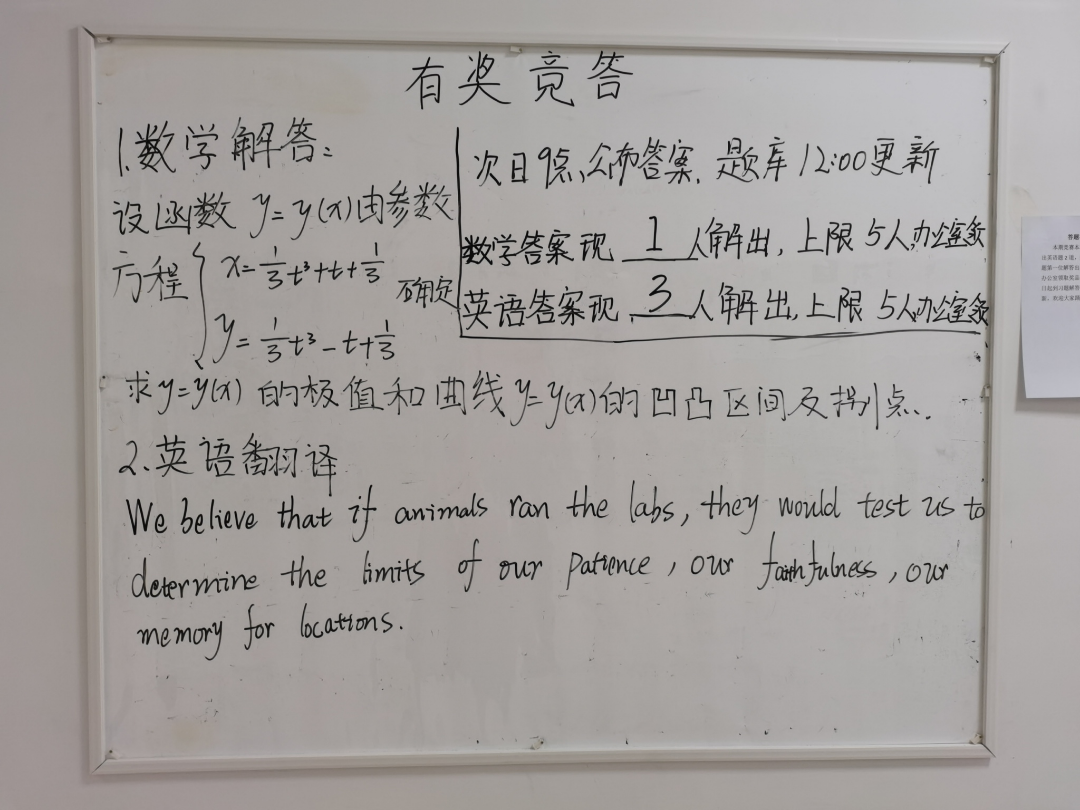 有奖竞答
1.数学解答:
设函数 y=y(x)由参数
方程 { x=1/3t³+t+1/3
y=1/3t³-t+1/3 确定
次日9点,公布答案,题库12:00更新
数学答案现 1 人解出,上限5人,办公室领
英语答案现 3 人解出,上限5人,办公室领
求y=y(x)的极值和曲线y=y(x)的凹凸区间及拐点..
2.英语翻译
We believe that if animals ran the labs, they would test us to
determine the limits of our patience, our faithfulness, our
memory for locations.